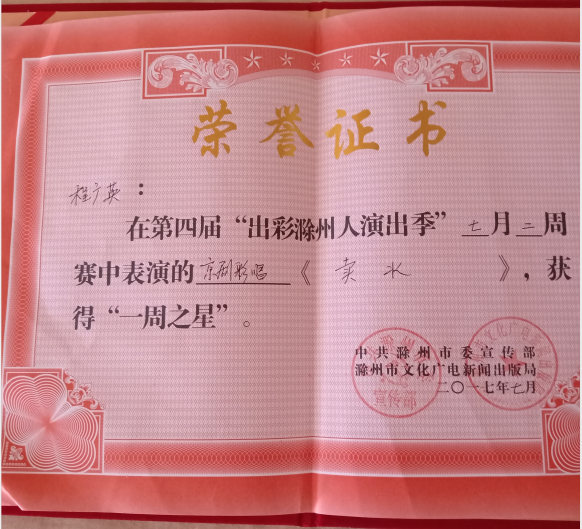 荣誉证书
程广英：
在第四届“出彩滁州人演出季”七月三周
赛中表演的京剧彩唱《卖水》，获
得“一周之星”。
中共滁州市委宣传部
滁州市文化广电新闻出版局
二〇一七年七月
宣传部